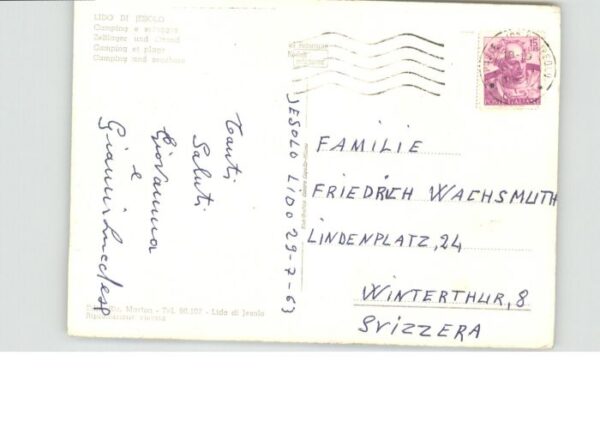 LIDO DI JESOLO
Camping e spiaggia
Zeltlager und Strand
Camping et plage
Camping and seashore
15
POSTE ITALIANE
Tanti
Saluti
Giovanna
e
Gianni
JESOLO LIDO 29-7-63
FAMILIE
FRIEDRICH WACHSMUTH
LINDENPLATZ, 24
WINTERTHUR, 8
SVIZZERA
Marton - Tel. 90.107 - Lido di Jesolo
Riproduzione vietata